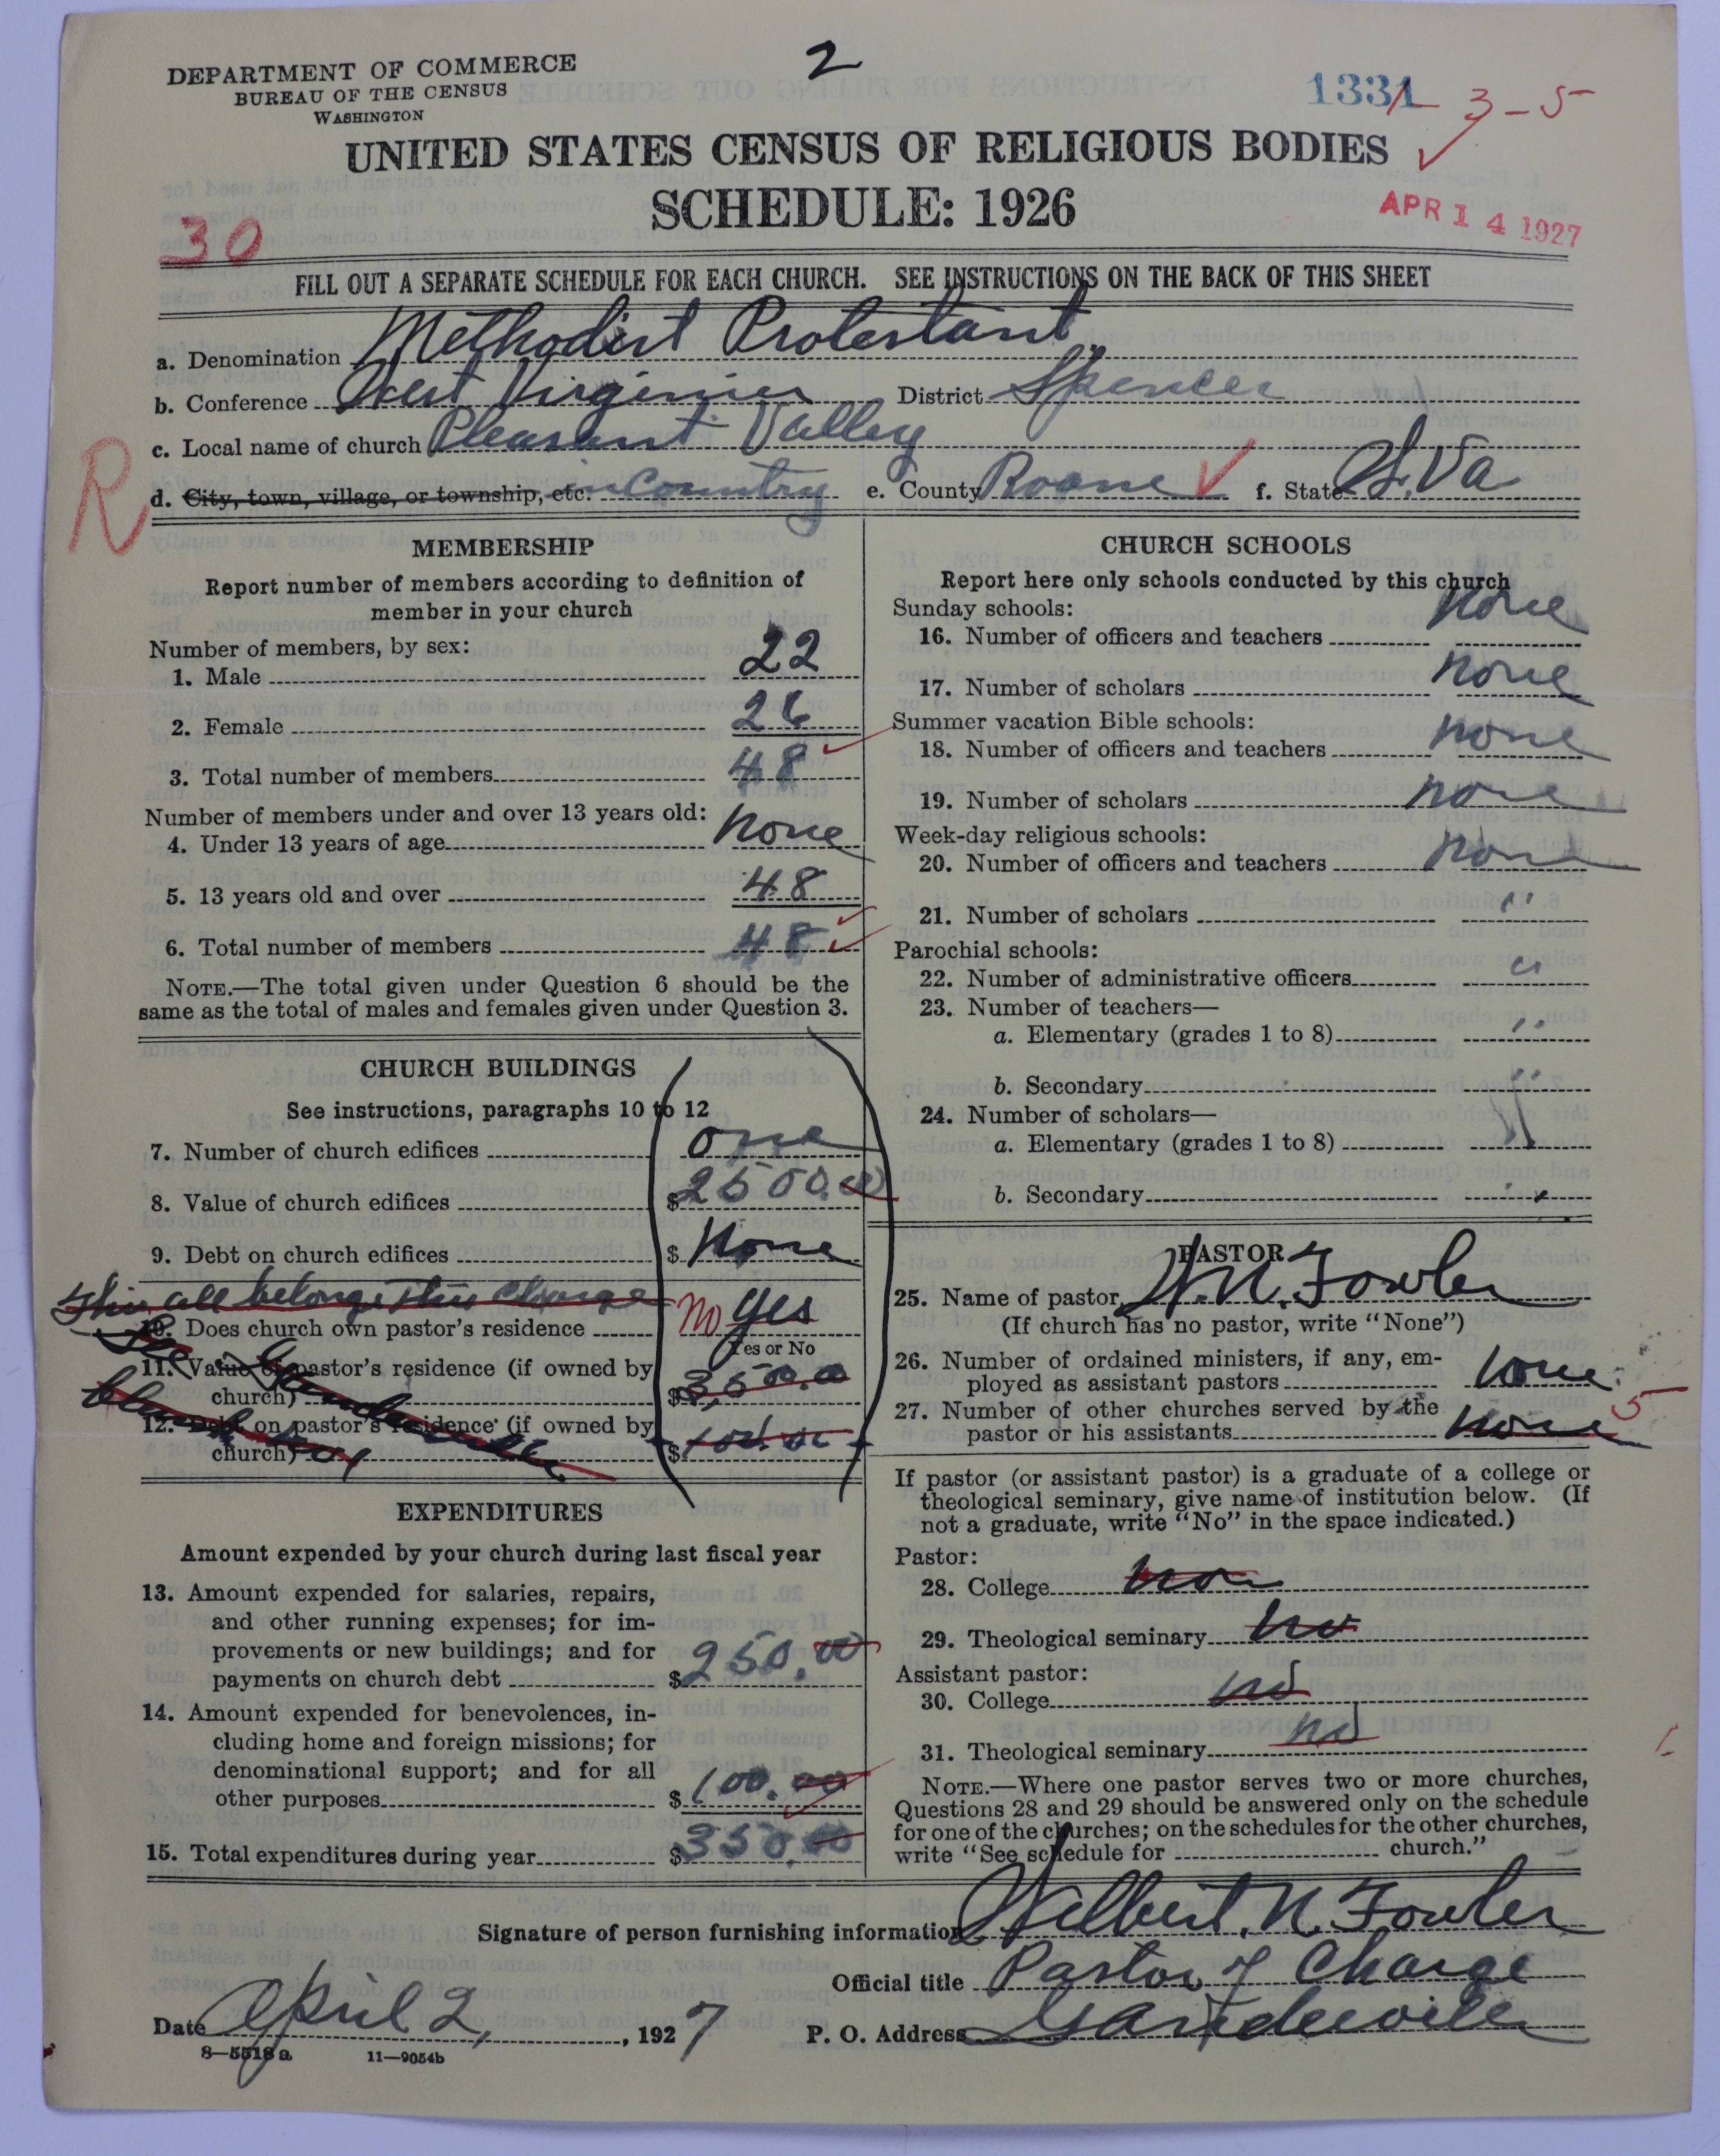 DEPARTMENT OF COMMERCE
BUREAU OF THE CENSUS
WASHINGTON
2
1331
3-5
UNITED STATES CENSUS OF RELIGIOUS BODIES
SCHEDULE: 1926
APR 14 1927
30
FILL OUT A SEPARATE SCHEDULE FOR EACH CHURCH. SEE INSTRUCTIONS ON THE BACK OF THIS SHEET
a. Denomination Methodist Protestant
b. Conference West Virginia District Spencer
c. Local name of church Pleasant Valley
R
d. City, town, village, or township, etc. in Country e. County Roane f. State W. Va
MEMBERSHIP
Report number of members according to definition of
member in your church
Number of members, by sex:
1. Male 22
2. Female 26
3. Total number of members 48
Number of members under and over 13 years old:
4. Under 13 years of age none
5. 13 years old and over 48
6. Total number of members 48
NOTE.—The total given under Question 6 should be the
same as the total of males and females given under Question 3.
CHURCH BUILDINGS
See instructions, paragraphs 10 to 12
7. Number of church edifices one
8. Value of church edifices $2500.00
9. Debt on church edifices $ None
This all belongs this Charge
10. Does church own pastor's residence No yes
Yes or No
11. Value of pastor's residence (if owned by
church) $3,500.00
12. Debt on pastor's residence (if owned by
church) $
EXPENDITURES
Amount expended by your church during last fiscal year
13. Amount expended for salaries, repairs,
and other running expenses; for im-
provements or new buildings; and for
payments on church debt $250.00
14. Amount expended for benevolences, in-
cluding home and foreign missions; for
denominational support; and for all
other purposes $100.00
15. Total expenditures during year $350.00
CHURCH SCHOOLS
Report here only schools conducted by this church
Sunday schools:
16. Number of officers and teachers none
17. Number of scholars none
Summer vacation Bible schools:
18. Number of officers and teachers none
19. Number of scholars none
Week-day religious schools:
20. Number of officers and teachers none
21. Number of scholars "
Parochial schools:
22. Number of administrative officers "
23. Number of teachers—
a. Elementary (grades 1 to 8) "
b. Secondary "
24. Number of scholars—
a. Elementary (grades 1 to 8) "
b. Secondary "
PASTOR
25. Name of pastor W. N. Fowler
(If church has no pastor, write "None")
26. Number of ordained ministers, if any, em-
ployed as assistant pastors none
27. Number of other churches served by the
pastor or his assistants none 5
If pastor (or assistant pastor) is a graduate of a college or
theological seminary, give name of institution below. (If
not a graduate, write "No" in the space indicated.)
Pastor:
28. College non
29. Theological seminary no
Assistant pastor:
30. College no
31. Theological seminary no
NOTE.—Where one pastor serves two or more churches,
Questions 28 and 29 should be answered only on the schedule
for one of the churches; on the schedules for the other churches,
write "See schedule for church."
Signature of person furnishing information Wilbert. N. Fowler
Official title Pastor of Charge
Date April 2, 1927 P. O. Address
8—5518a 11—9054b